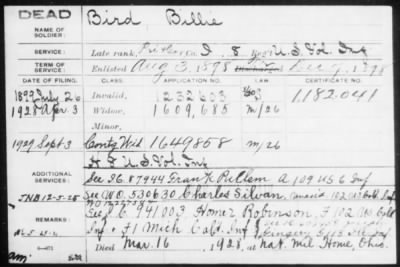 DEAD
NAME OF SOLDIER: Bird Billie
SERVICE: Late rank, Pvt Co. I, 8 Reg't U.S. Vol. Inf
TERM OF SERVICE: Enlisted Aug 3, 1898 Discharged Dec 9, 1898
DATE OF FILING. CLASS. APPLICATION NO. LAW CERTIFICATE NO.
1899 July 26 Invalid, 1232603 1.182.041
1928 Apr. 3 Widow, 1.609,685 M/26
Minor,
1929 Sept 3 Contg Wid 1649858 M/26
ADDITIONAL SERVICES:
U.S. Vol. Inf
See Frank A 109 US C Inf
See WO. 530630 Charles Silvan, Inf
REMARKS:
See 941003, Homer Robinson, F 102 US Cold
Inf + F 1 Mich Cold. Inf
Died Mar. 16, 1928, at Nat. Mil. Home, Ohio.